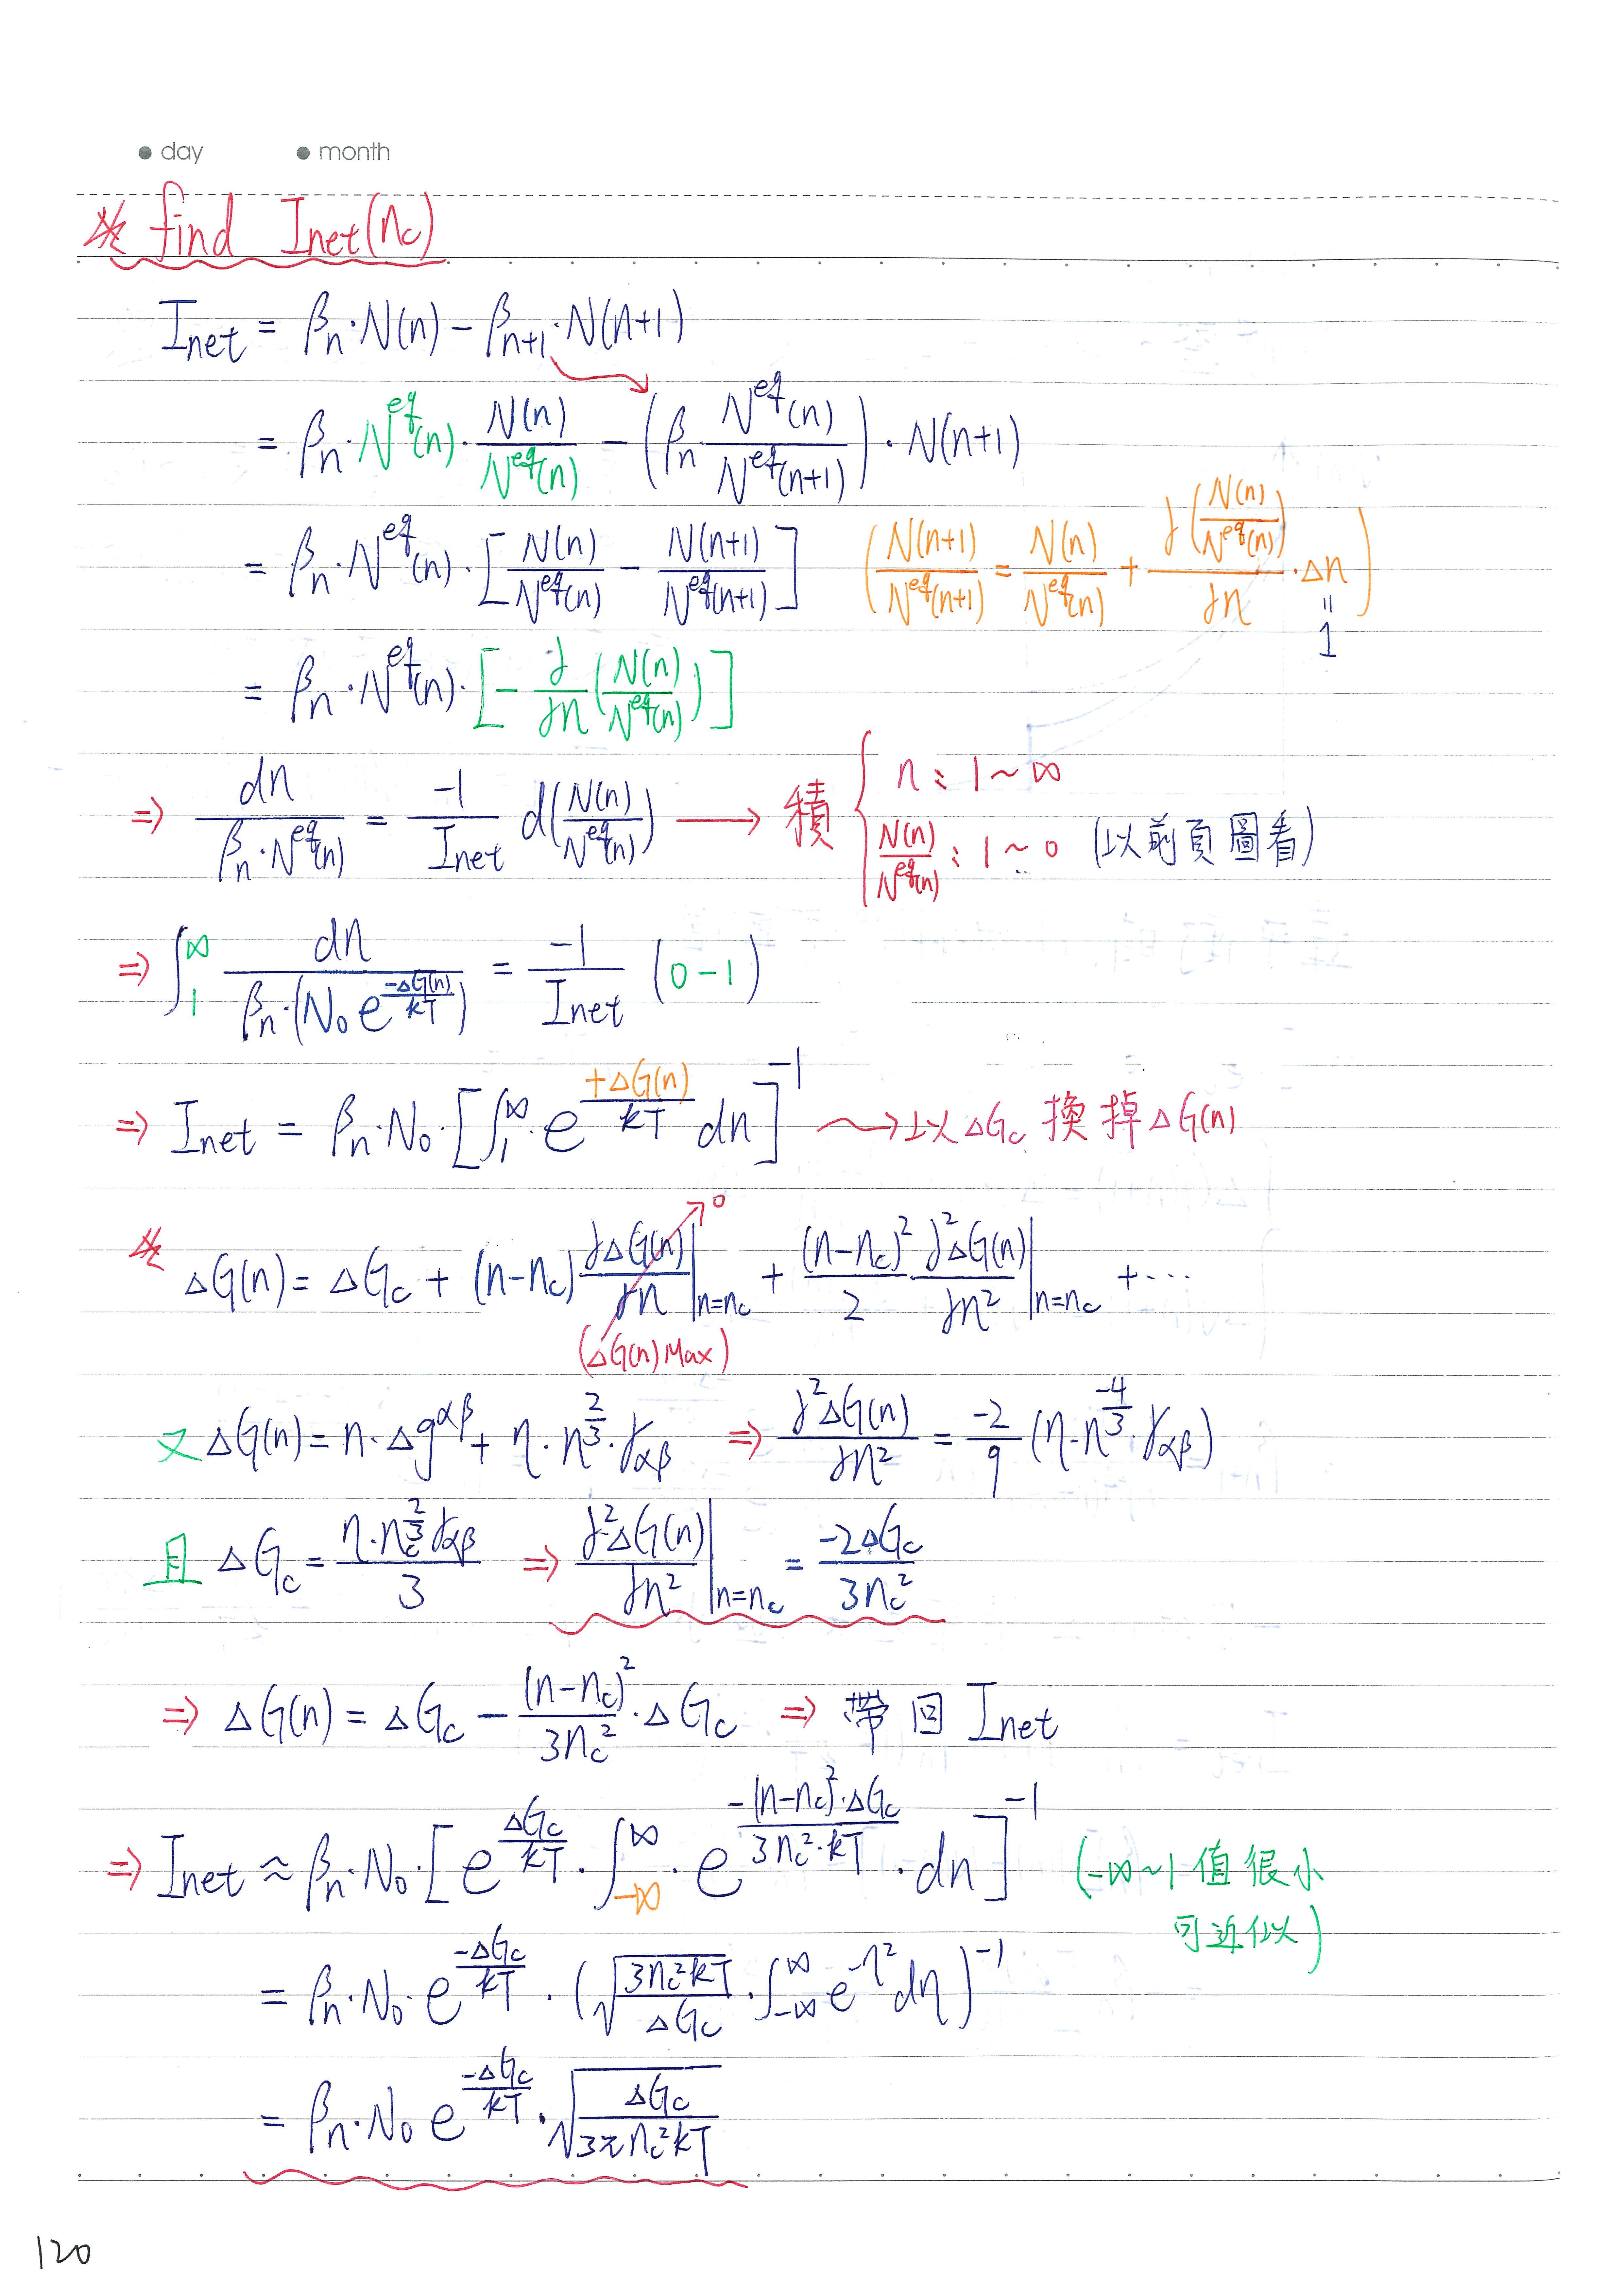 ● day ● month
※ find Inet(nc)
Inet = βn·N(n) − βn+1·N(n+1)
= βn·N^eq(n)· N(n)/N^eq(n) − (βn· N^eq(n)/N^eq(n+1))·N(n+1)
= βn·N^eq(n)·[N(n)/N^eq(n) − N(n+1)/N^eq(n+1)] (N(n+1)/N^eq(n+1) = N(n)/N^eq(n) + ∂(N(n)/N^eq(n))/∂n ·Δn)
" 1
= βn·N^eq(n)·[−∂/∂n (N(n)/N^eq(n))]
⇒ dn/(βn·N^eq(n)) = −1/Inet d(N(n)/N^eq(n)) → 積 { n: 1~∞
N(n)/N^eq(n): 1~0 (以前頁圖看)
⇒ ∫_1^∞ dn/(βn·(N0 e^(−ΔG(n)/kT))) = −1/Inet (0−1)
⇒ Inet = βn·N0·[∫_1^∞ · e^(+ΔG(n)/kT) dn]^−1 → 以ΔGc 換掉ΔG(n)
※ ΔG(n) = ΔGc + (n−nc) ∂ΔG(n)/∂n |n=nc → 0 + (n−nc)^2/2 ∂^2ΔG(n)/∂n^2 |n=nc + ⋯
(ΔG(n) Max)
又 ΔG(n) = n·Δg^αβ + η·n^(2/3)·γαβ ⇒ ∂^2ΔG(n)/∂n^2 = −2/9 (η·n^(−4/3)·γαβ)
且 ΔGc = η·nc^(2/3) γαβ/3 ⇒ ∂^2ΔG(n)/∂n^2 |n=nc = −2ΔGc/3nc^2
⇒ ΔG(n) = ΔGc − (n−nc)^2/3nc^2 ·ΔGc ⇒ 帶回 Inet
⇒ Inet ≈ βn·N0·[e^(ΔGc/kT)·∫_−∞^∞ · e^(−(n−nc)^2·ΔGc/3nc^2·kT) · dn]^−1 (−∞~1 值很小
可近似)
= βn·N0·e^(−ΔGc/kT) · (√(3nc^2kT/ΔGc) · ∫_−∞^∞ e^(−η^2) dη)^−1
= βn·N0 e^(−ΔGc/kT) · √(ΔGc/3πnc^2kT)
120